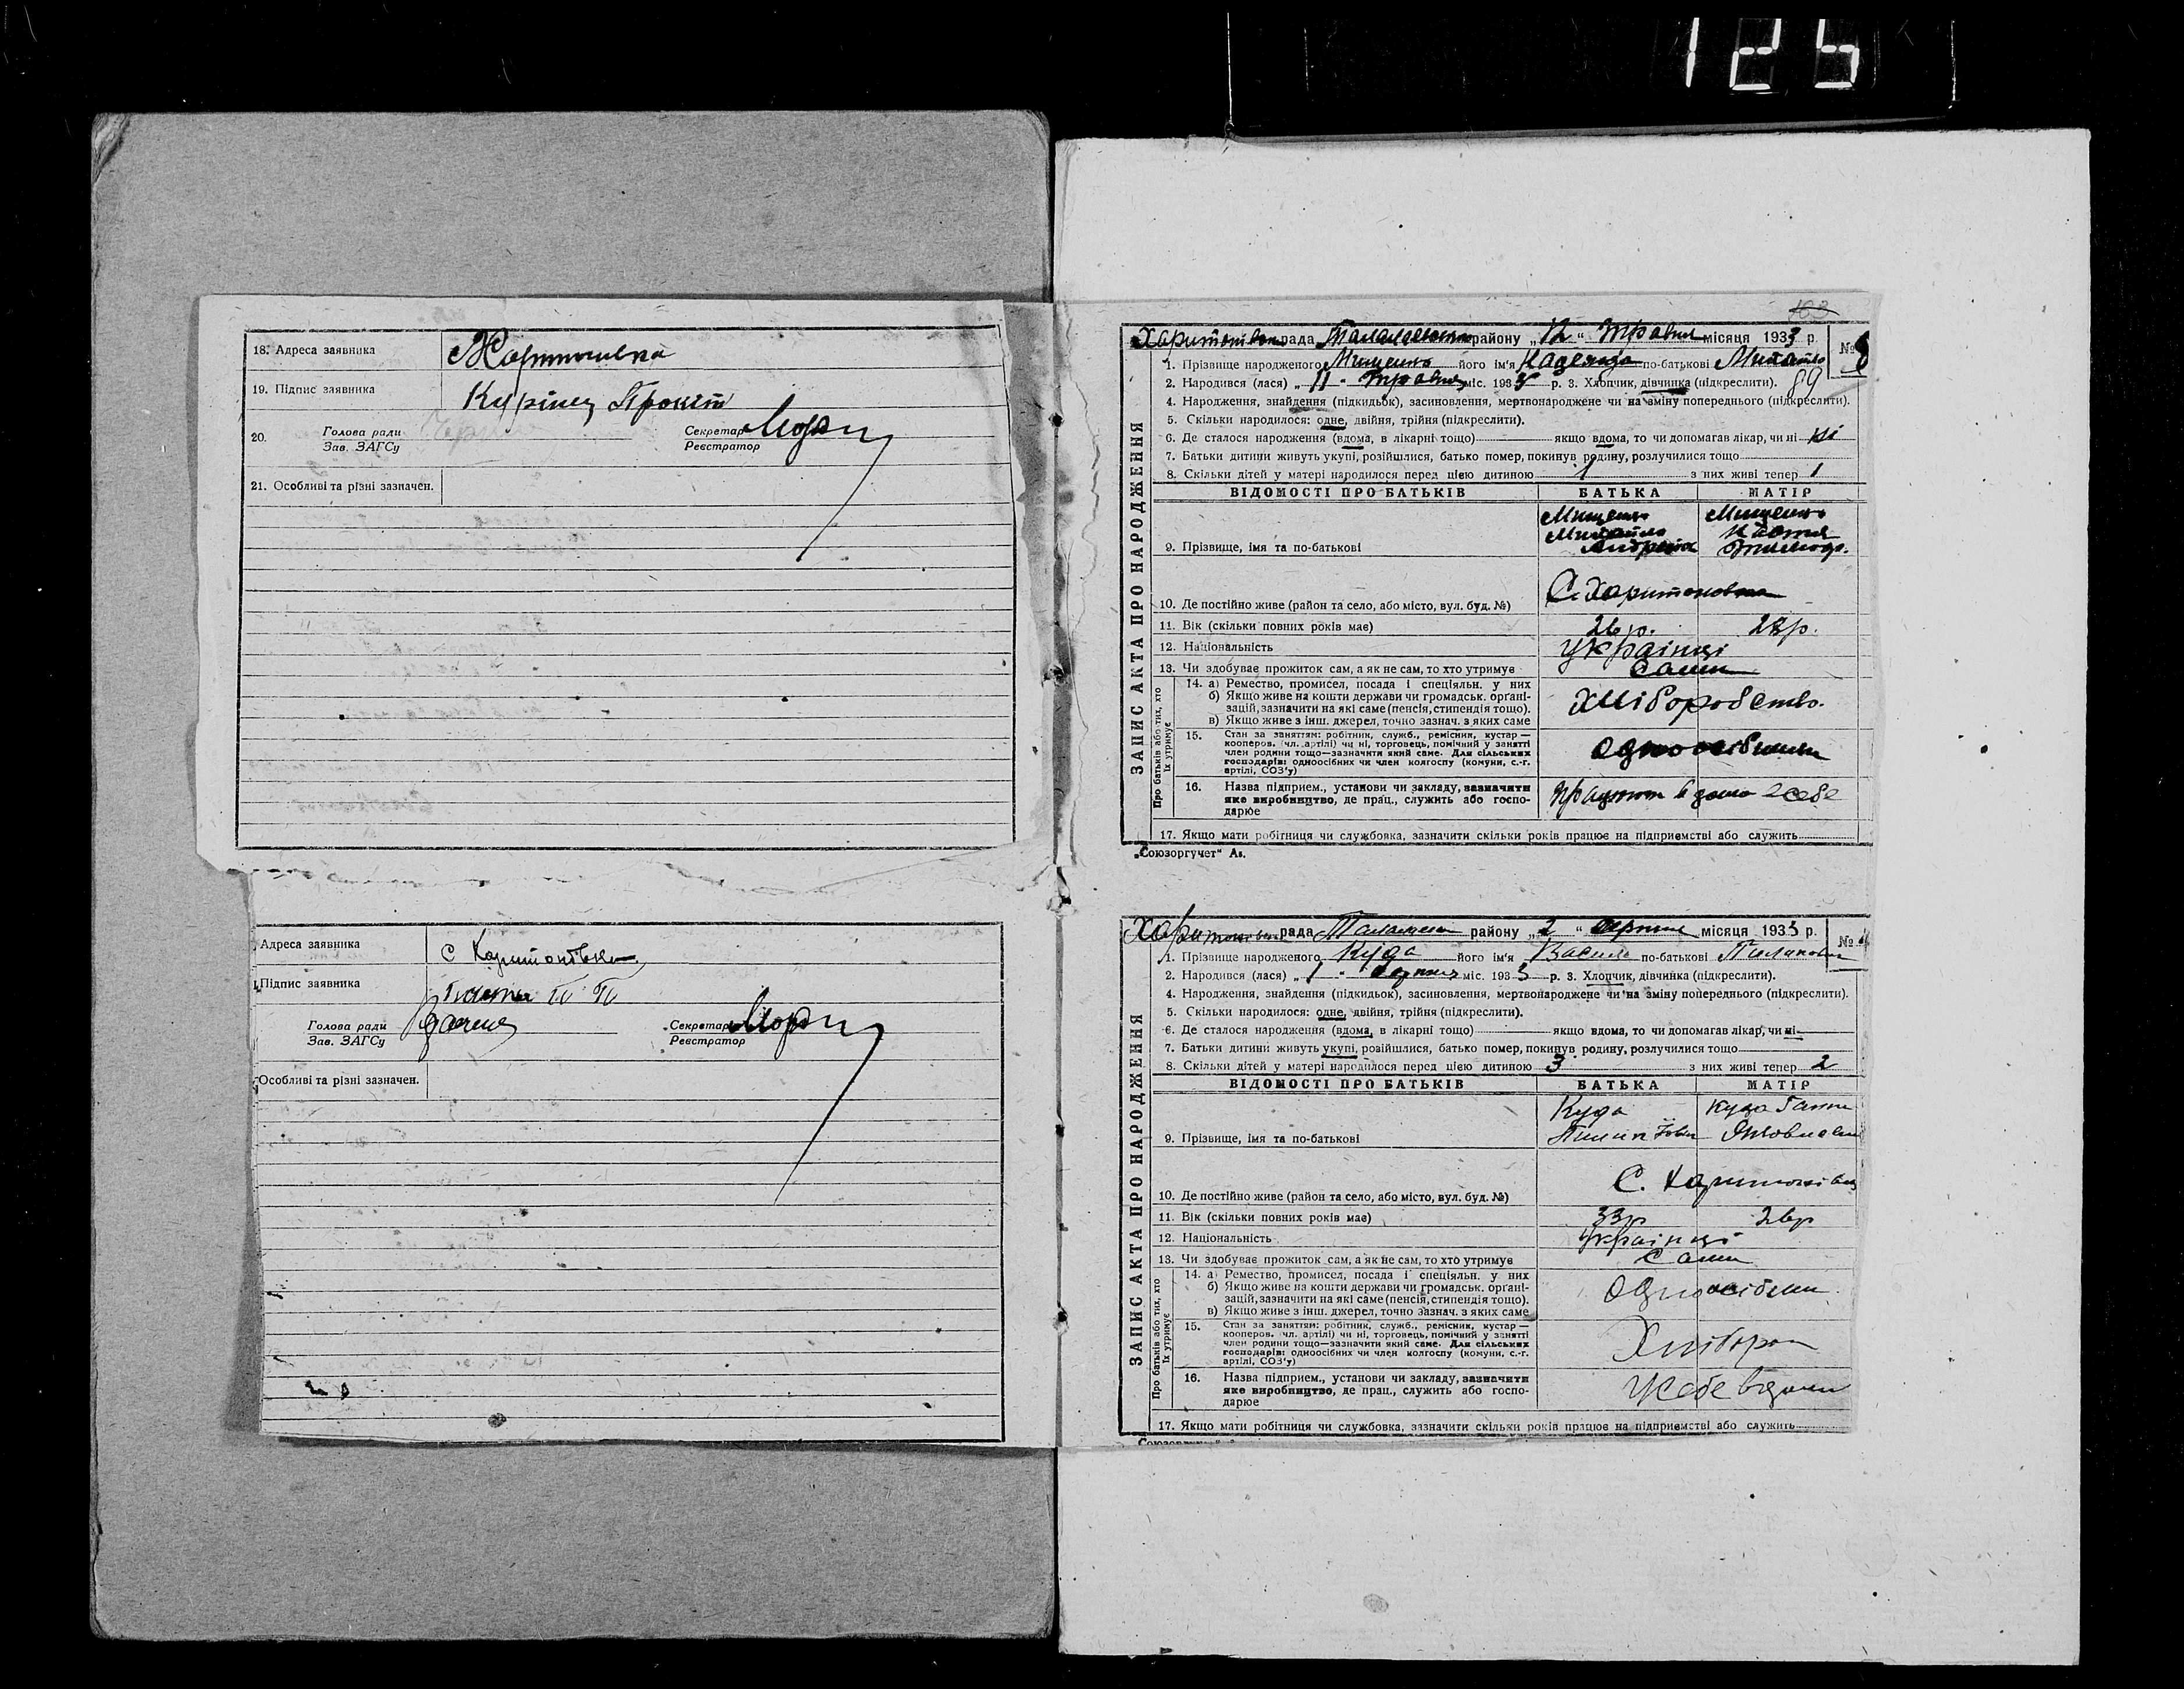 125
18. Адреса заявника
Харитонівка
19. Підпис заявника
Курінец Прокіп
20.
Голова ради
Зав. ЗАГСу
Секретар
Реєстратор
21. Особливі та різні зазначен.
Адреса заявника
с Харитонівка
Підпис заявника
Голова ради
Зав. ЗАГСу
Секретар
Реєстратор
Особливі та різні зазначен.
103
рада Талалаївського району „12“ Травня місяця 1933 р. № 8
89
ЗАПИС АКТА ПРО НАРОДЖЕННЯ
1. Прізвище народженого Мищенко його ім'я Надежда по-батькові
2. Народився (лася) „11“ Травня міс. 1933 р. 3. Хлопчик, дівчинка (підкреслити).
4. Народження, знайдення (підкидьок), засиновлення, мертвонароджене чи на зміну попереднього (підкреслити).
5. Скільки народилося: одне, двійня, трійня (підкреслити).
6. Де сталося народження (вдома, в лікарні тощо) якщо вдома, то чи допомагав лікар, чи ні ні
7. Батьки дитини живуть укупі, розійшлися, батько помер, покинув родину, розлучилися тощо
8. Скільки дітей у матері народилося перед цією дитиною 1 з них живі тепер 1
ВІДОМОСТІ ПРО БАТЬКІВ БАТЬКА МАТІР
9. Прізвище, імя та по-батькові
Мищенко Михайло Мищенко
10. Де постійно живе (район та село, або місто, вул. буд. №) С. Харитоновка
11. Вік (скільки повних років має) 26 р. 28 р.
12. Національність Українці
13. Чи здобуває прожиток сам, а як не сам, то хто утримує Сами
Про батьків або тих, хто їх утримує
14. а) Ремество, промисел, посада і спеціяльн. у них
б) Якщо живе на кошти держави чи громадськ. орґані-
зацій, зазначити на які саме (пенсія, стипендія тощо).
в) Якщо живе з інш. джерел, точно зазнач. з яких саме
Хліборобство.
15. Стан за заняттям: робітник, служб., ремісник, кустар —
кооперов. (чл. артілі) чи ні, торговець, помічний у занятті
член родини тощо—зазначити який саме. Для сільських
господарів: одноосібних чи член колгоспу (комуни, с.-г.
артілі, СОЗ'у)
16. Назва підприєм., установи чи закладу, зазначити
яке виробництво, де прац., служить або госпо-
дарює
17. Якщо мати робітниця чи службовка, зазначити скільки років працює на підприємстві або служить
„Союзоргучет“ Ав.
рада району „2“ серпня місяця 1933 р. №
ЗАПИС АКТА ПРО НАРОДЖЕННЯ
1. Прізвище народженого Куда його ім'я Василь по-батькові Пилипович
2. Народився (лася) „1“ серпня міс. 1933 р. 3. Хлопчик, дівчинка (підкреслити).
4. Народження, знайдення (підкидьок), засиновлення, мертвонароджене чи на зміну попереднього (підкреслити).
5. Скільки народилося: одне, двійня, трійня (підкреслити).
6. Де сталося народження (вдома, в лікарні тощо) якщо вдома, то чи допомагав лікар, чи ні
7. Батьки дитини живуть укупі, розійшлися, батько помер, покинув родину, розлучилися тощо
8. Скільки дітей у матері народилося перед цією дитиною 3 з них живі тепер 2
ВІДОМОСТІ ПРО БАТЬКІВ БАТЬКА МАТІР
Куда Куда Ганна
9. Прізвище, імя та по-батькові Пилип
10. Де постійно живе (район та село, або місто, вул. буд. №) С. Харитонівка
11. Вік (скільки повних років має) 33р 26р
12. Національність Українці
13. Чи здобуває прожиток сам, а як не сам, то хто утримує Сами
Про батьків або тих, хто їх утримує
14. а) Ремество, промисел, посада і спеціяльн. у них
б) Якщо живе на кошти держави чи громадськ. орґані-
зацій, зазначити на які саме (пенсія, стипендія тощо).
в) Якщо живе з інш. джерел, точно зазнач. з яких саме
15. Стан за заняттям: робітник, служб., ремісник, кустар —
кооперов. чл. артілі) чи ні, торговець, помічний у занятті
член родини тощо—зазначити який саме. Для сільських
господарів: одноосібних чи член колгоспу (комуни, с.-г.
артілі, СОЗ'у)
16. Назва підприєм., установи чи закладу, зазначити
яке виробництво, де прац., служить або госпо-
дарює
17. Якщо мати робітниця чи службовка, зазначити скільки років працює на підприємстві або служить